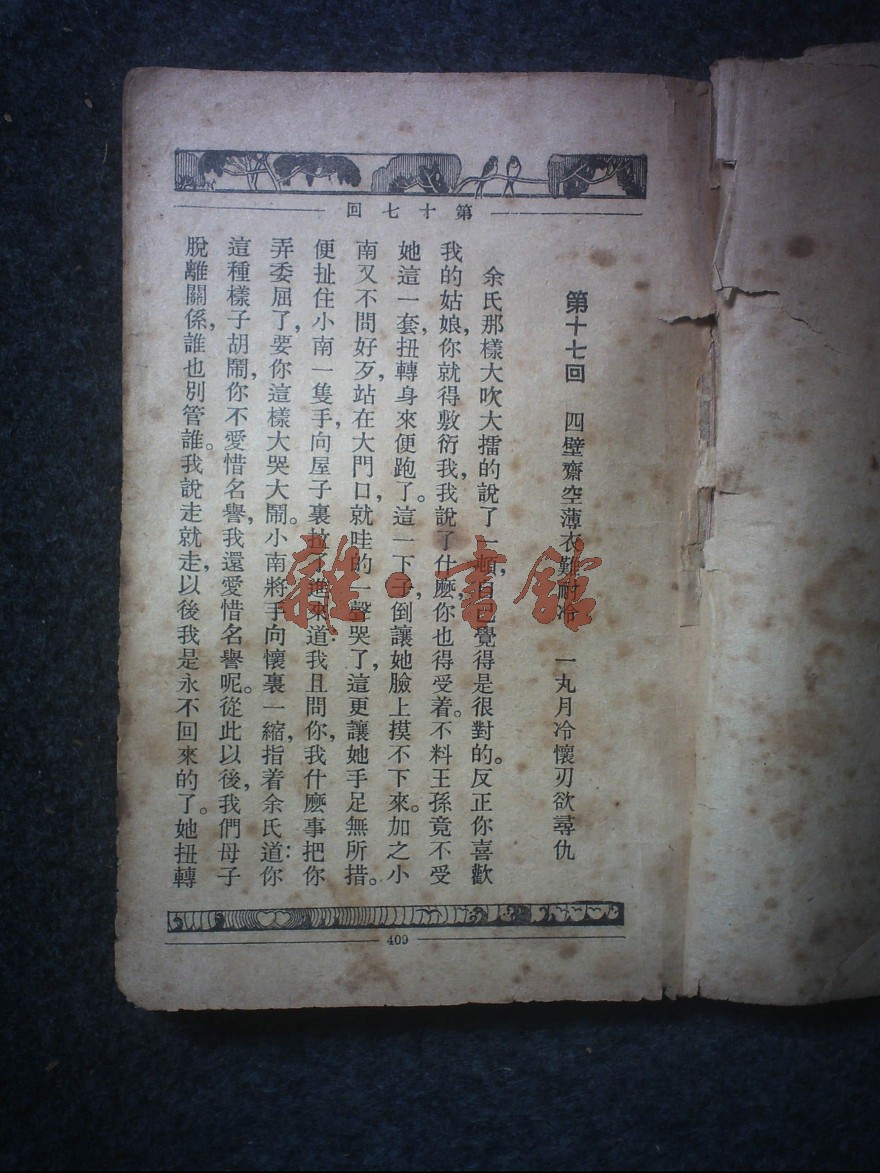 回七十第
第十七回　四壁齋空薄衣難耐冷　一丸月冷懷刃欲尋仇
余氏那樣大吹大擂的說了一頓，自己覺得是很對的。反正你喜歡
我的姑娘，你就得敷衍我，我說了什麽，你也得受着。不料王孫竟不受
她這一套，扭轉身來便跑了。這一下子，倒讓她臉上摸不下來。加之小
南又不問好歹，站在大門口，就哇的一聲哭了，這更讓她手足無所措。
便扯住小南一隻手，向屋子裏拉了進來道：我且問你，我什麽事把你
弄委屈了，要你這樣大哭大鬧。小南將手向懷裏一縮，指着余氏道：你
這種樣子胡鬧，你不愛惜名譽，我還愛惜名譽呢。從此以後，我們母子
脫離關係，誰也別管誰。我說走就走，以後我是永不回來的了。她扭轉
409
雜·書館